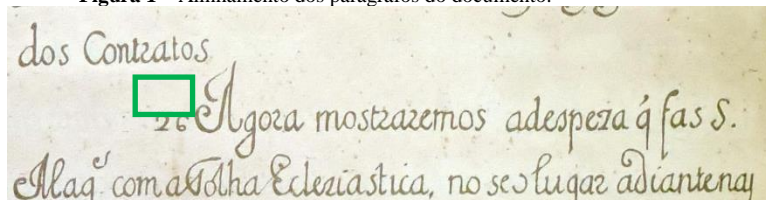 Figura 1 – Alinhamento dos parágrafos do documento.
dos Contratos
26 Agora mostraremos adespeza q̃ fas S.
Mag.^e com a Folha Ecleziastica, no seo lugar adiantenaj